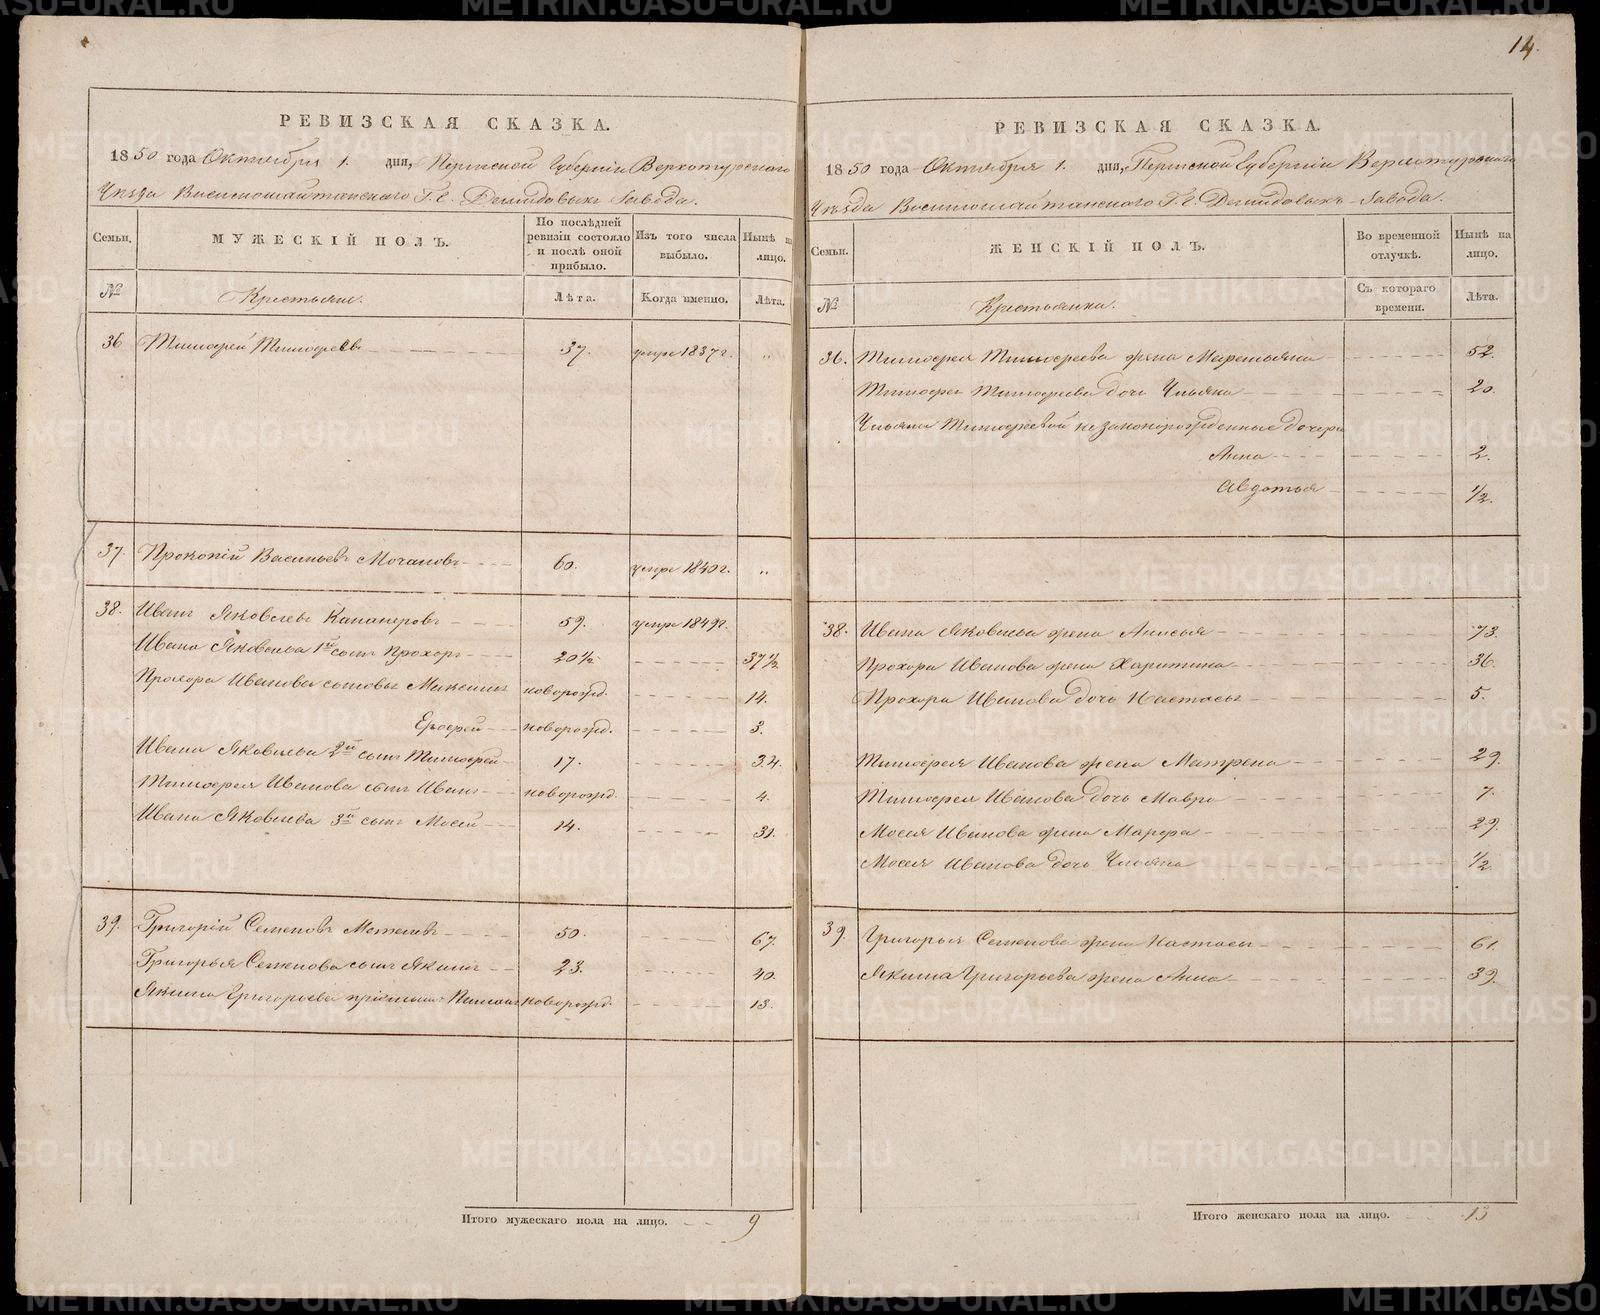 14.
РЕВИЗСКАЯ СКАЗКА.
1850 года Октября 1. дня, Пермской Губерніи Верхотурского
Уѣзда Висимошайтанского Г.г. Демидовыхъ Завода.
Семьи.
МУЖЕСКІЙ ПОЛЪ.
По послѣдней ревизіи состояло и послѣ оной прибыло.
Изъ того числа выбыло.
Нынѣ на лицо.
№
Крестьяне.
Лѣта.
Когда именно.
Лѣта.
36 Тимофей Тимофеевъ 37. умре 1837 г. „
37. Прокопій Васильевъ Мочаловъ 60. умре 1840 г. „
38. Иванъ Яковлевъ 59. умре 1849 г.
Ивана Яковлева 1й сынъ Прохоръ 20 ½ 37 ½
Прохора Иванова сыновья Максимъ новорожд. 14.
Ерофей новорожд. 3.
Ивана Яковлева 2й сынъ Тимофей 17. 34.
Тимофея Иванова сынъ Иванъ новорожд. 4.
Ивана Яковлева 3й сынъ Мосей 14. 31.
39. Григорій Семеновъ 50. 67.
Григорья Семенова сынъ Якимъ 23. 40.
Якима Григорьева пріемышъ новорожд. 13.
Итого мужескаго пола на лицо. 9
РЕВИЗСКАЯ СКАЗКА.
1850 года Октября 1. дня, Пермской Губерніи Верхотурского
Уѣзда Висимошайтанского Г.г. Демидовыхъ Завода.
Семьи.
ЖЕНСКІЙ ПОЛЪ.
Во временной отлучкѣ.
Нынѣ на лицо.
№
Крестьянки.
Съ котораго времени.
Лѣта.
36. Тимофея Тимофеева жена Маремьяна 52.
Тимофея Тимофеева дочь Ульяна 20.
Ульяны Тимофеевой незаконорожденные дочери
Анна 2.
Авдотья ½.
38. Ивана Яковлева жена Анисья 73.
Прохора Иванова жена Харитина 36.
Прохора Иванова дочь Настасья 5.
Тимофея Иванова жена Матрена 29.
Тимофея Иванова дочь Мавра 7.
Мосея Иванова жена Марфа 29.
Мосея Иванова дочь Ульяна ½
39. Григорья Семенова жена Настасья 61.
Якима Григорьева жена Анна 39.
Итого женскаго пола на лицо. 13
METRIKI.GASO-URAL.RU